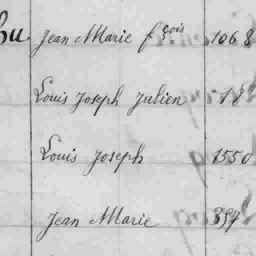 hu Jean Marie fçois 1068
Louis Joseph Julien
Louis Joseph 1550
Jean Marie 897